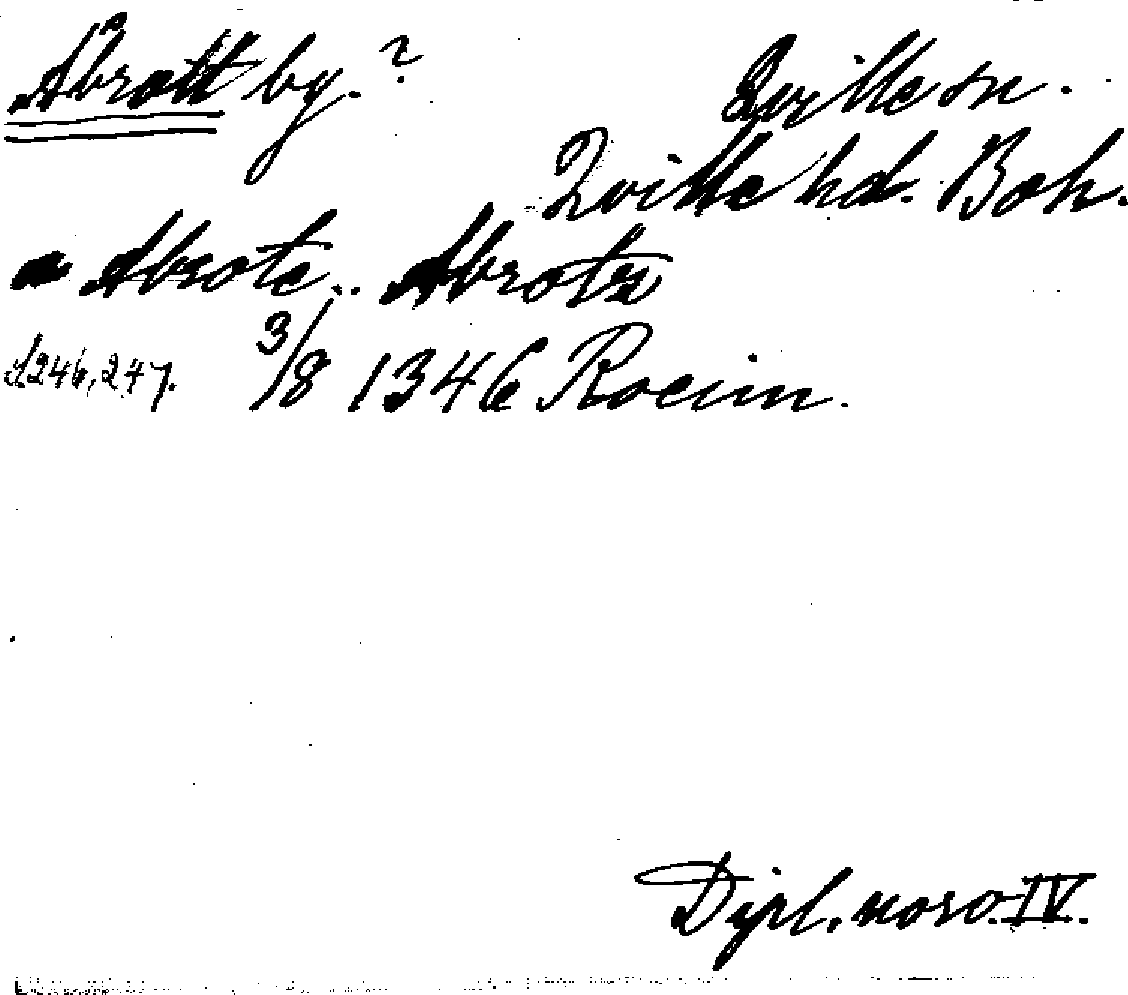 Abrott by. ? Qville sn.
Qville hd. Boh.
a Abrote.. Abrotz
s 246, 247. 3/8 1346 Rocim.
Dipl. norv. IV.